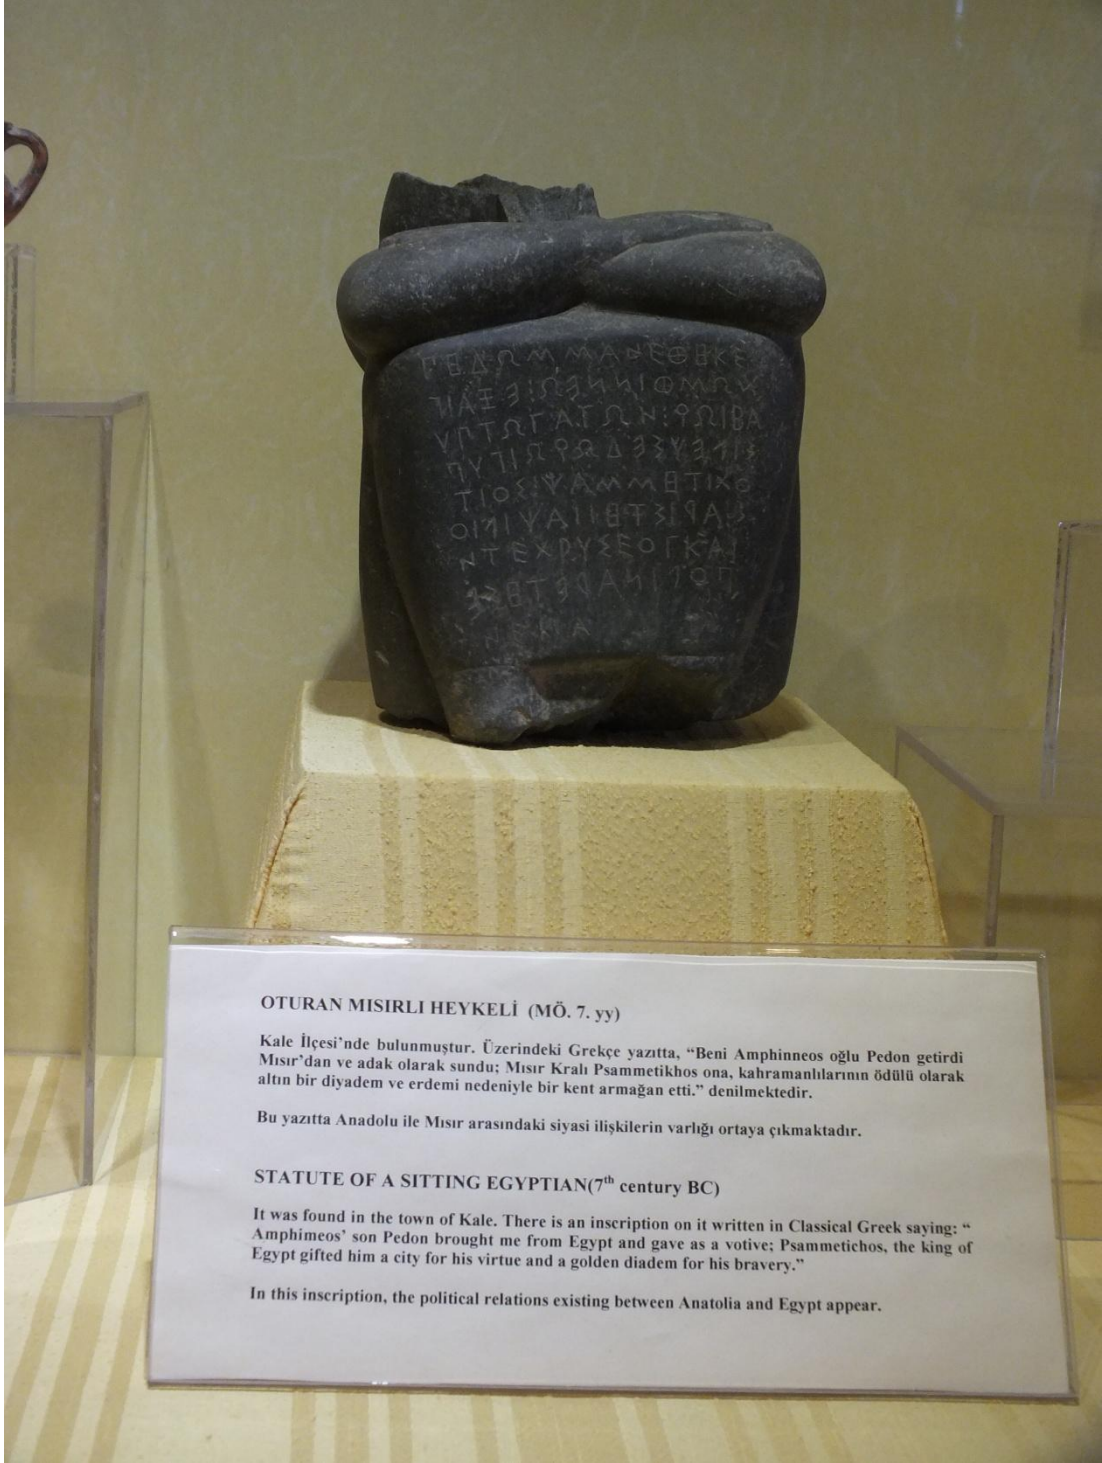 ΠΗΔΩΜΜΑΝΕΘΗΚΕ
ΝΩΜΦΙΝΝΕΩ:ΕΞΑΙΓ
ΥΠΤΩΓΑΓΩΝ:ϘΩΙΒΑ
ΣΙΛΕΥΣΕΔΩϘΩΙΓΥΠ
ΤΙΟΣ:ΨΑΜΜΗΤΙΧΟ
Σ:ΑΡΙΣΤΗΙΙΑΨΙΛΙΟ
ΝΤΕΧΡΥΣΕΟΓΚΑΙ
ΠΟΛΙΝΑΡΕΤΗΣΕ
ΝΕΚΑ
OTURAN MISIRLI HEYKELİ (MÖ. 7. yy)
Kale İlçesi’nde bulunmuştur. Üzerindeki Grekçe yazıtta, “Beni Amphinneos oğlu Pedon getirdi
Mısır’dan ve adak olarak sundu; Mısır Kralı Psammetikhos ona, kahramanlılarının ödülü olarak
altın bir diyadem ve erdemi nedeniyle bir kent armağan etti.” denilmektedir.
Bu yazıtta Anadolu ile Mısır arasındaki siyasi ilişkilerin varlığı ortaya çıkmaktadır.
STATUTE OF A SITTING EGYPTIAN(7th century BC)
It was found in the town of Kale. There is an inscription on it written in Classical Greek saying: “
Amphimeos’ son Pedon brought me from Egypt and gave as a votive; Psammetichos, the king of
Egypt gifted him a city for his virtue and a golden diadem for his bravery.”
In this inscription, the political relations existing between Anatolia and Egypt appear.